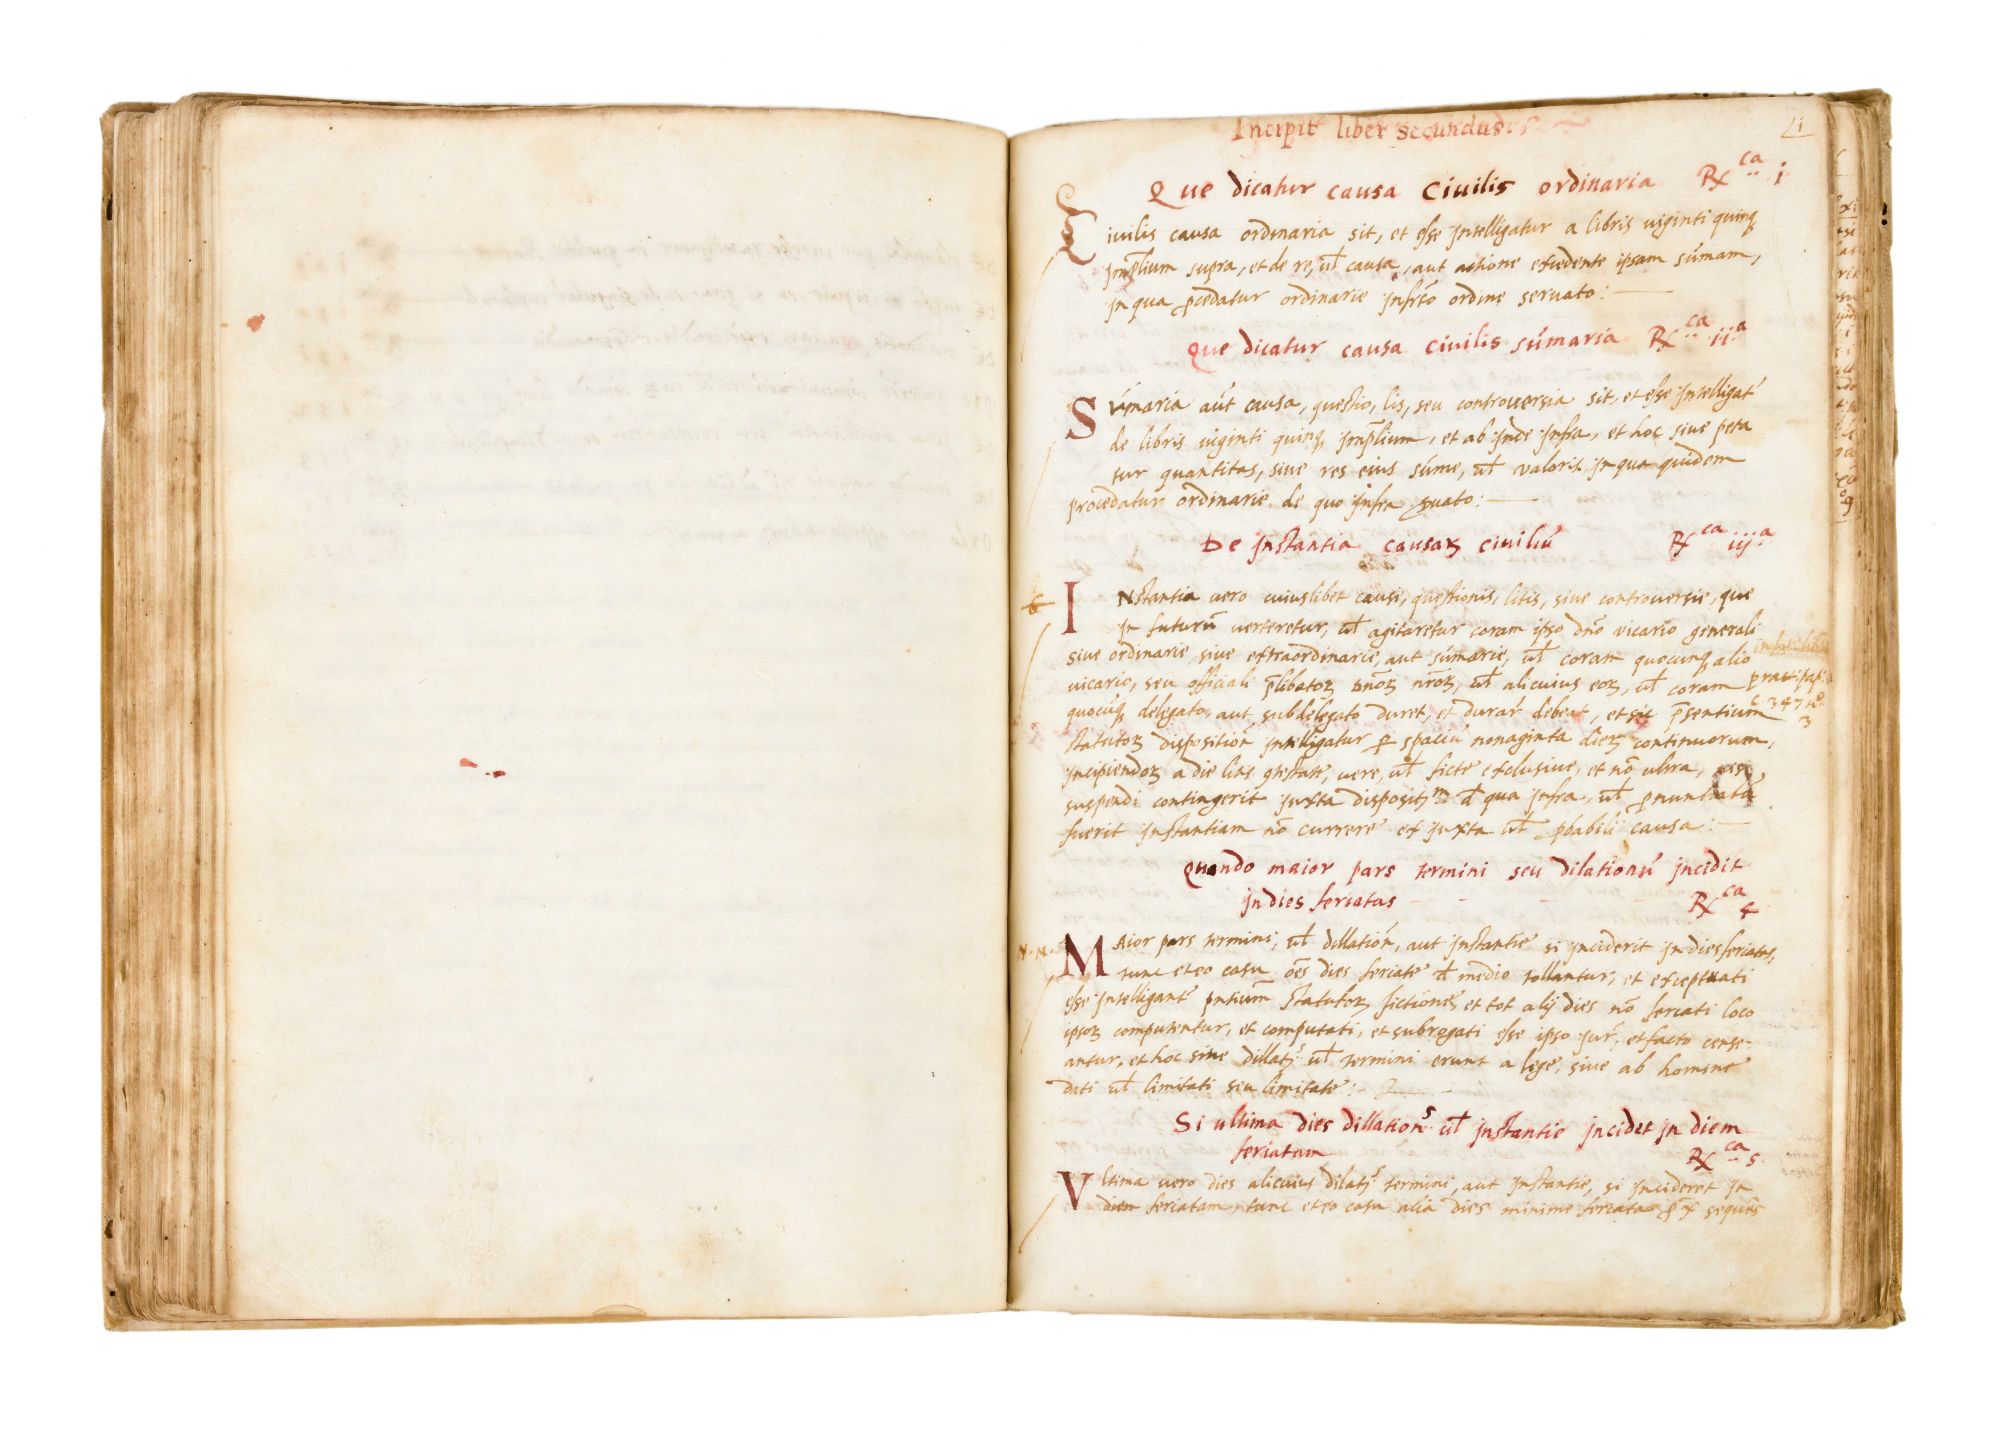 Incipit liber secundus
Que dicatur causa Ciuilis ordinaria Rx ca i
Ciuilis causa ordinaria sit, et esse Intelligatur a libris uiginti quinq
Imp̄lium supra, et de re, ul̄ causa, aut actione excedente ipsam sūmam,
In qua ꝓcedatur ordinarie Infrc̄o ordine seruato:
Que dicatur causa Ciuilis sūmaria Rx ca iia
Sūmaria aūt causa, questio, lis, seu controuersia sit, et esse Intelligat̄
de libris uiginti quinq Imp̄lium, et ab Inde Infra, et hoc siue peta
tur quantitas, siue res eius sūme, ul̄ valoris, In qua quidem
procedatur ordinarie de quo Infra ꝓuato:
De Instantia causaꝝ ciuiliū Rx ca iija
INstantia uero cuiuslibet cause, questionis, litis, siue controuersie, que
In futurū uerteretur, ul̄ agitaretur coram ipso dn̄o vicario generali
siue ordinarie, siue extraordinarie, aut sūmarie, ul̄ coram quocunq alio
uicario, seu officiali p̄libatoꝝ dn̄oꝝ nr̄oꝝ, ul̄ alicuius eoꝝ, ul̄ coram
prati: pap:
quocūq delegato, aut subdelegato duret, et durar̄ debeat, et sic p̄sentium
347
3
statutoꝝ disposition̄ Intelligatur ꝑ spaciū nonaginta dieꝝ continuorum,
Incipiendoꝝ a die litis ꝯtestate, uere, ul̄ ficte exclusiue, et nō ultra,
suspendi contingerit Iuxta disposit̄m d̄ qua Infra, ul̄ ꝓnuntiatū
fuerit Instantiam nō currere ex Iuxta ul̄ ꝓbabili causa:
Quando maior pars termini seu dilationū Incidit
In dies feriatas Rx ca 4
N. N.
MAior pars termini, ul̄ dillation̄, aut Instantie si Inciderit In dies feriatas,
tunc et eo casu oēs dies feriate d̄ medio tollantur, et exceptuati
esse Intelligant̄ pn̄tium statutoꝝ fictione, et tot alij dies nō feriati loco
ipsoꝝ computentur, et computati, et subrogati esse ipso Iur̄, et facto cense-
antur, et hoc siue dillat̄s ul̄ termini erunt a lege, siue ab homine
dati ul̄ limitati seu limitate:
Si ultima dies dillations ul̄ Instantie Incidet In diem
feriatam Rx ca 5
Vltima uero dies alicuius dilat̄s termini, aut Instantie, si Incideret In
diem feriatam, tunc et eo casu alia dies minime feriata ꝓx sequēs